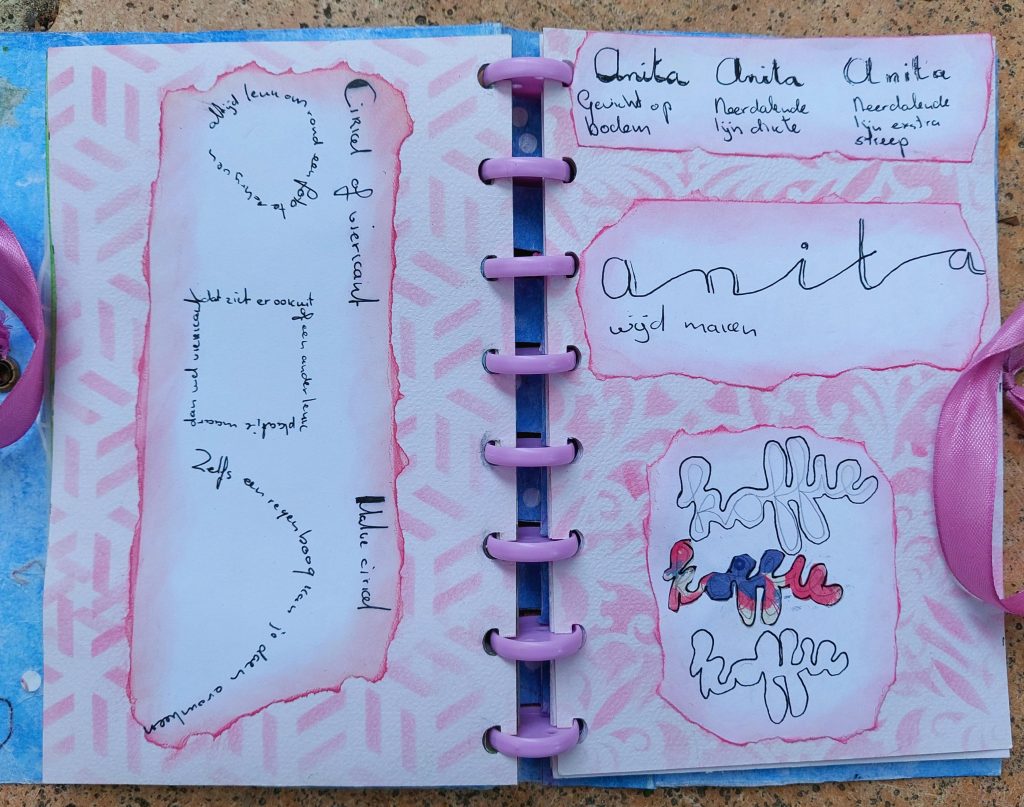 Cirkel of vierkant
altijd leuk om rond een foto te
dat ziet er ook uit
of een ander leuk
plaatje maar
Halve cirkel
Zelfs een regenboog kan je doen
Anita Anita Anita
Gewicht op
bodem
Neerdalende
lijn dikte
Neerdalende
lijn exstra
streep
anita
wijd maken
koffie
koffie
koffie